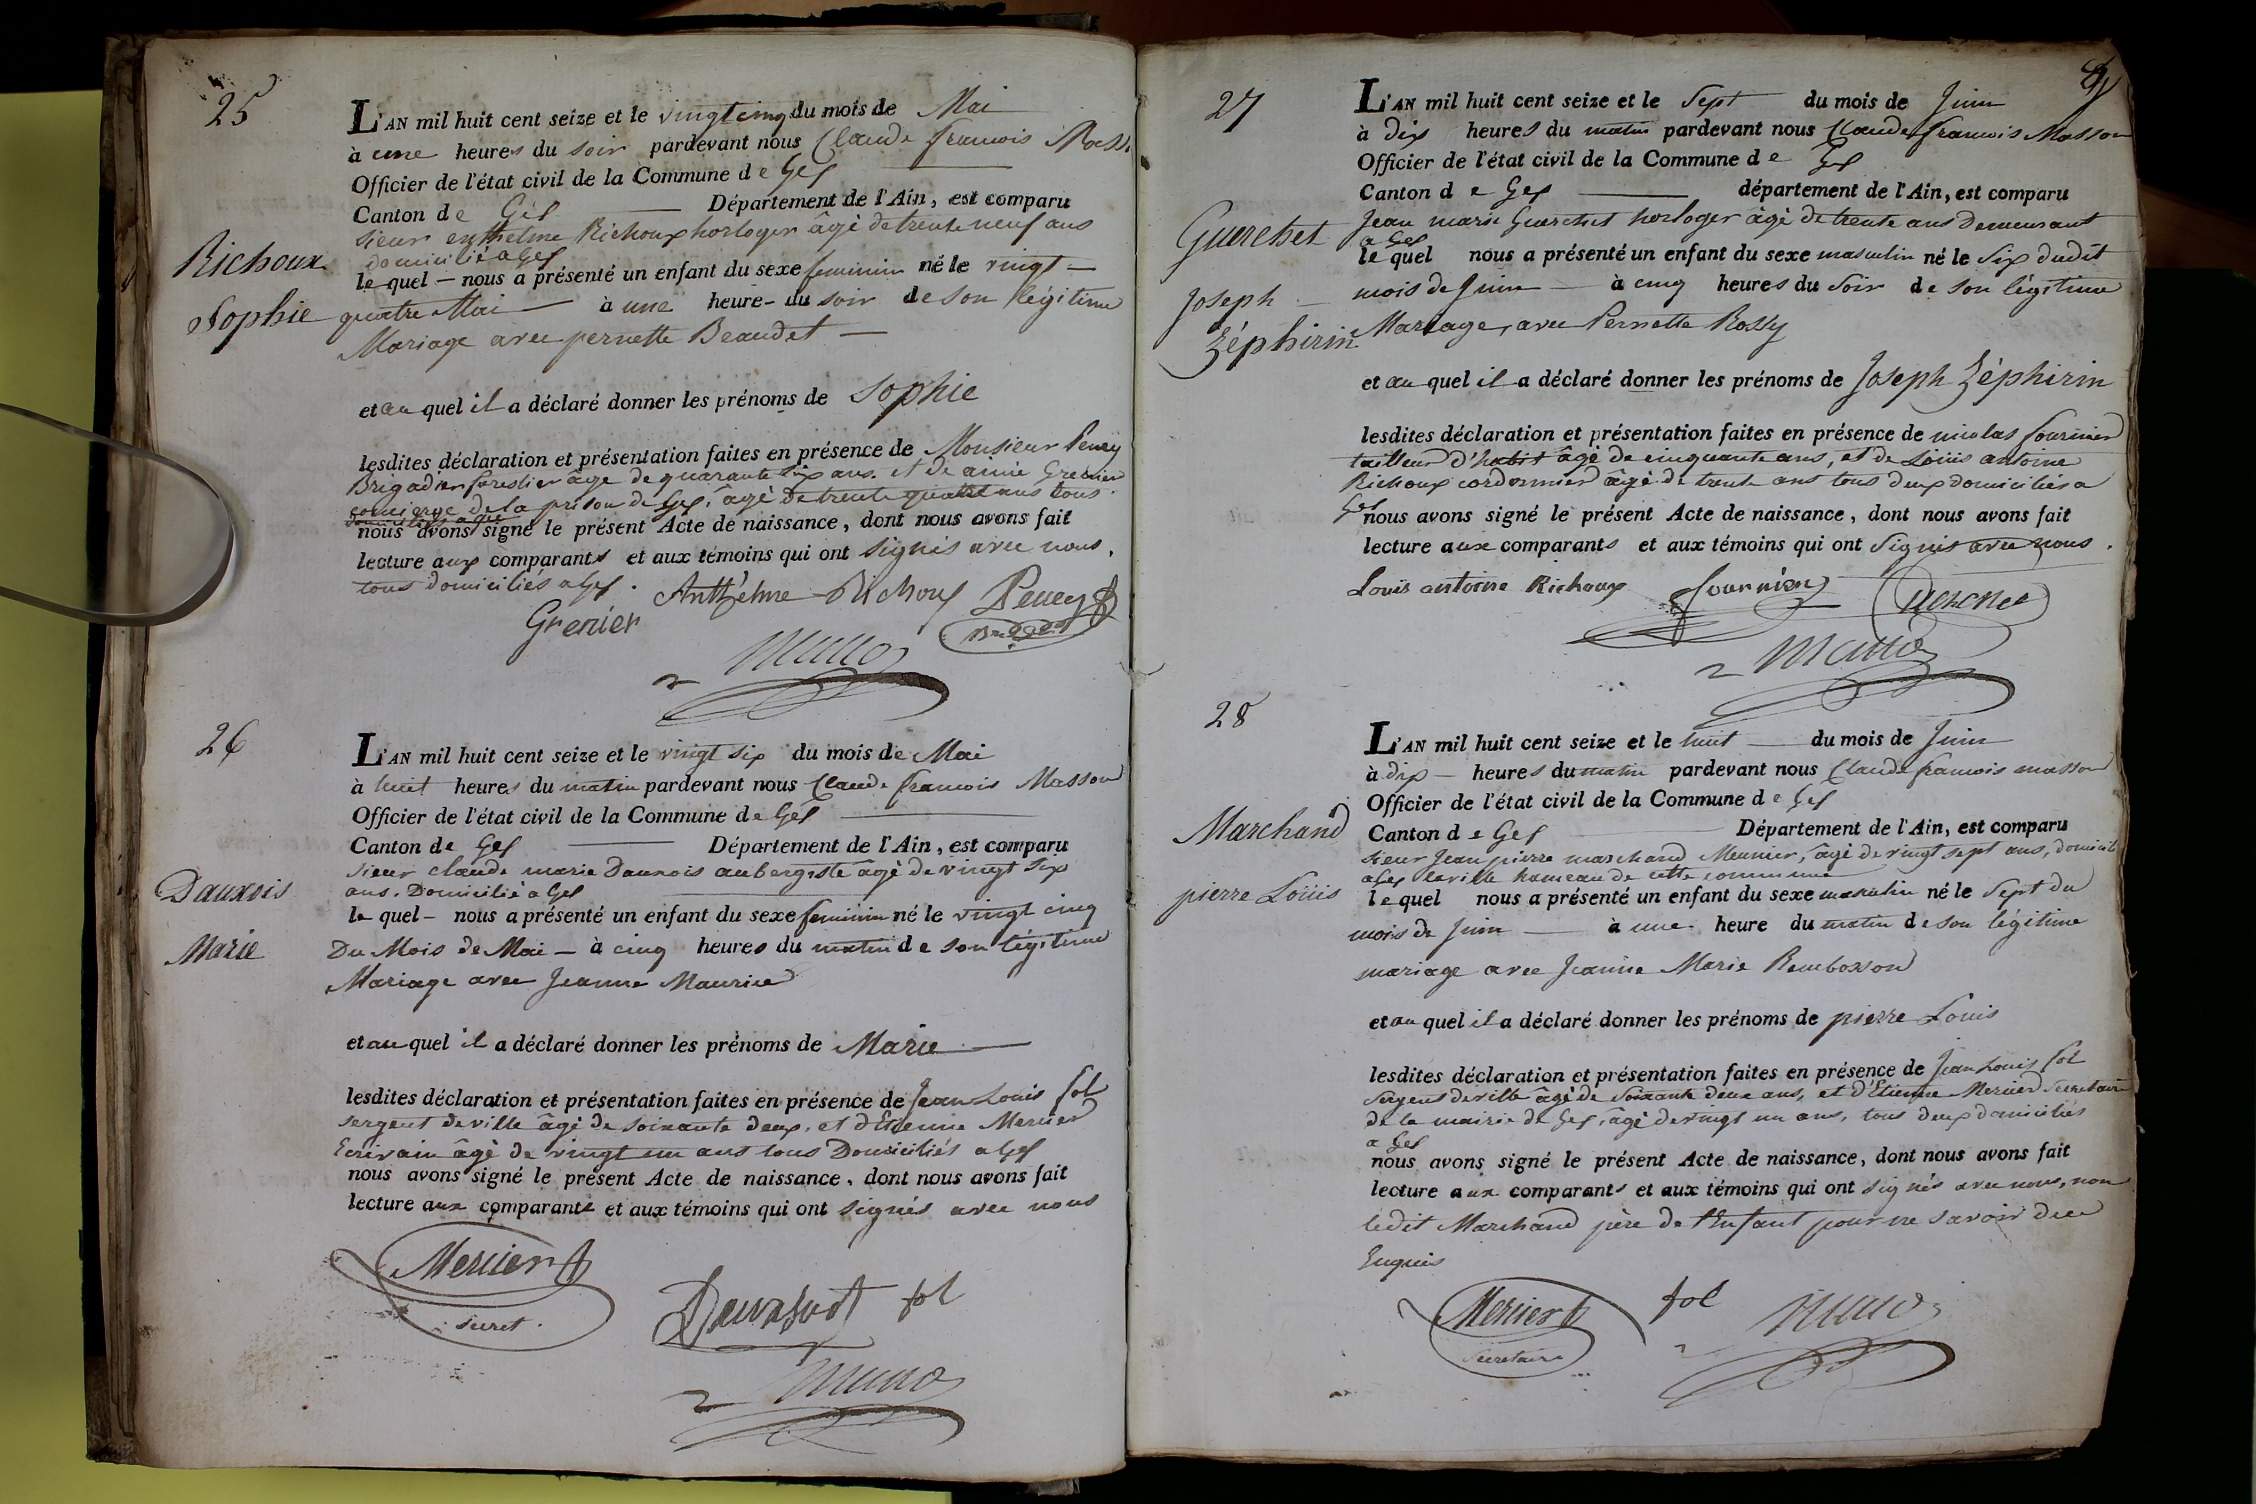 25
L'AN mil huit cent seize et le vingt cinq du mois de Mai
à une heures du soir pardevant nous Claude francois
Officier de l'état civil de la Commune de Gex
Canton de Gex Département de l'Ain, est comparu
Sieur Richoux horloger âgé de trente neuf ans
domicilié a Gex
Richoux
le quel - nous a présenté un enfant du sexe feminin né le vingt
Sophie
quatre Mai à une heure - du soir de son légitime
Mariage avec pernette Beaudet
et au quel il a déclaré donner les prénoms de Sophie
lesdites déclaration et présentation faites en présence de Monsieur Peney
Brigadier forestier âgé de quarante six ans. et de aimé Grenier
concierge de la prison de Gex, âgé de trente quatre ans tous
domiciliés a Gex
nous avons signé le présent Acte de naissance, dont nous avons fait
lecture aux comparants et aux témoins qui ont signés avec nous,
tous domiciliés a Gex.
Anthelme Richoux Peney
Grenier
26
L'AN mil huit cent seize et le vingt six du mois de Mai
à huit heures du matin pardevant nous Claude francois Masson
Officier de l'état civil de la Commune de Gex
Canton de Gex Département de l'Ain, est comparu
Sieur claude marie Dauxois aubergiste âgé de vingt six
ans. Domicilié a Gex
Dauxois
le quel - nous a présenté un enfant du sexe feminin né le vingt cinq
Marie
Du Mois de Mai - à cinq heures du matin de son légitime
Mariage avec Jeanne Maurice
et au quel il a déclaré donner les prénoms de Marie
lesdites déclaration et présentation faites en présence de Jean Louis fol
sergent de ville âgé de soixante deux, et d'Etienne Mercier
Ecrivain âgé de vingt un ans tous Domiciliés a Gex
nous avons signé le présent Acte de naissance, dont nous avons fait
lecture aux comparants et aux témoins qui ont signés avec nous
Mercier
secret.
fol
27
L'AN mil huit cent seize et le Sept du mois de Juin
à dix heures du matin pardevant nous Claude francois Masson
Officier de l'état civil de la Commune de Gex
Canton de Gex département de l'Ain, est comparu
Guerchet
Jean marie Guerchet horloger âgé de trente ans demeurant
a Gex
le quel nous a présenté un enfant du sexe masculin né le Six dudit
Joseph
mois de Juin à cinq heures du Soir de son légitime
Zéphirin
Mariage, avec Pernette Rossy
et au quel il a déclaré donner les prénoms de Joseph Zéphirin
lesdites déclaration et présentation faites en présence de nicolas fournier
tailleur d'habit âgé de cinquante ans, et de Loüis antoine
Richoux cordonnier âgé de trente ans tous deux domiciliés a
Gex
nous avons signé le présent Acte de naissance, dont nous avons fait
lecture aux comparants et aux témoins qui ont Signés avec nous.
Louis antoine Richoux fournier Guerchet
28
L'AN mil huit cent seize et le huit du mois de Juin
à dix - heures du matin pardevant nous Claude francois masson
Officier de l'état civil de la Commune de Gex
Marchand
Canton de Gex Département de l'Ain, est comparu
Sieur Jean pierre marchand Meunier, âgé de vingt sept ans, domicilié
a Gex la ville hameau de cette commune
pierre Loüis
le quel nous a présenté un enfant du sexe masculin né le Sept du
mois de Juin à une heure du matin de son légitime
mariage avec Jeanne Marie Rembosson
et au quel il a déclaré donner les prénoms de pierre Louis
lesdites déclaration et présentation faites en présence de Jean Louis fol
Sergent de ville âgé de Soixante deux ans, et d'Etienne Mercier Secretaire
de la mairie de Gex, âgé de vingt un ans, tous deux domiciliés
a Gex
nous avons signé le présent Acte de naissance, dont nous avons fait
lecture aux comparants et aux témoins qui ont signés avec nous, non
ledit Marchand père de l'Enfant pour ne savoir de ce
Enquis
Mercier fol
Secretaire